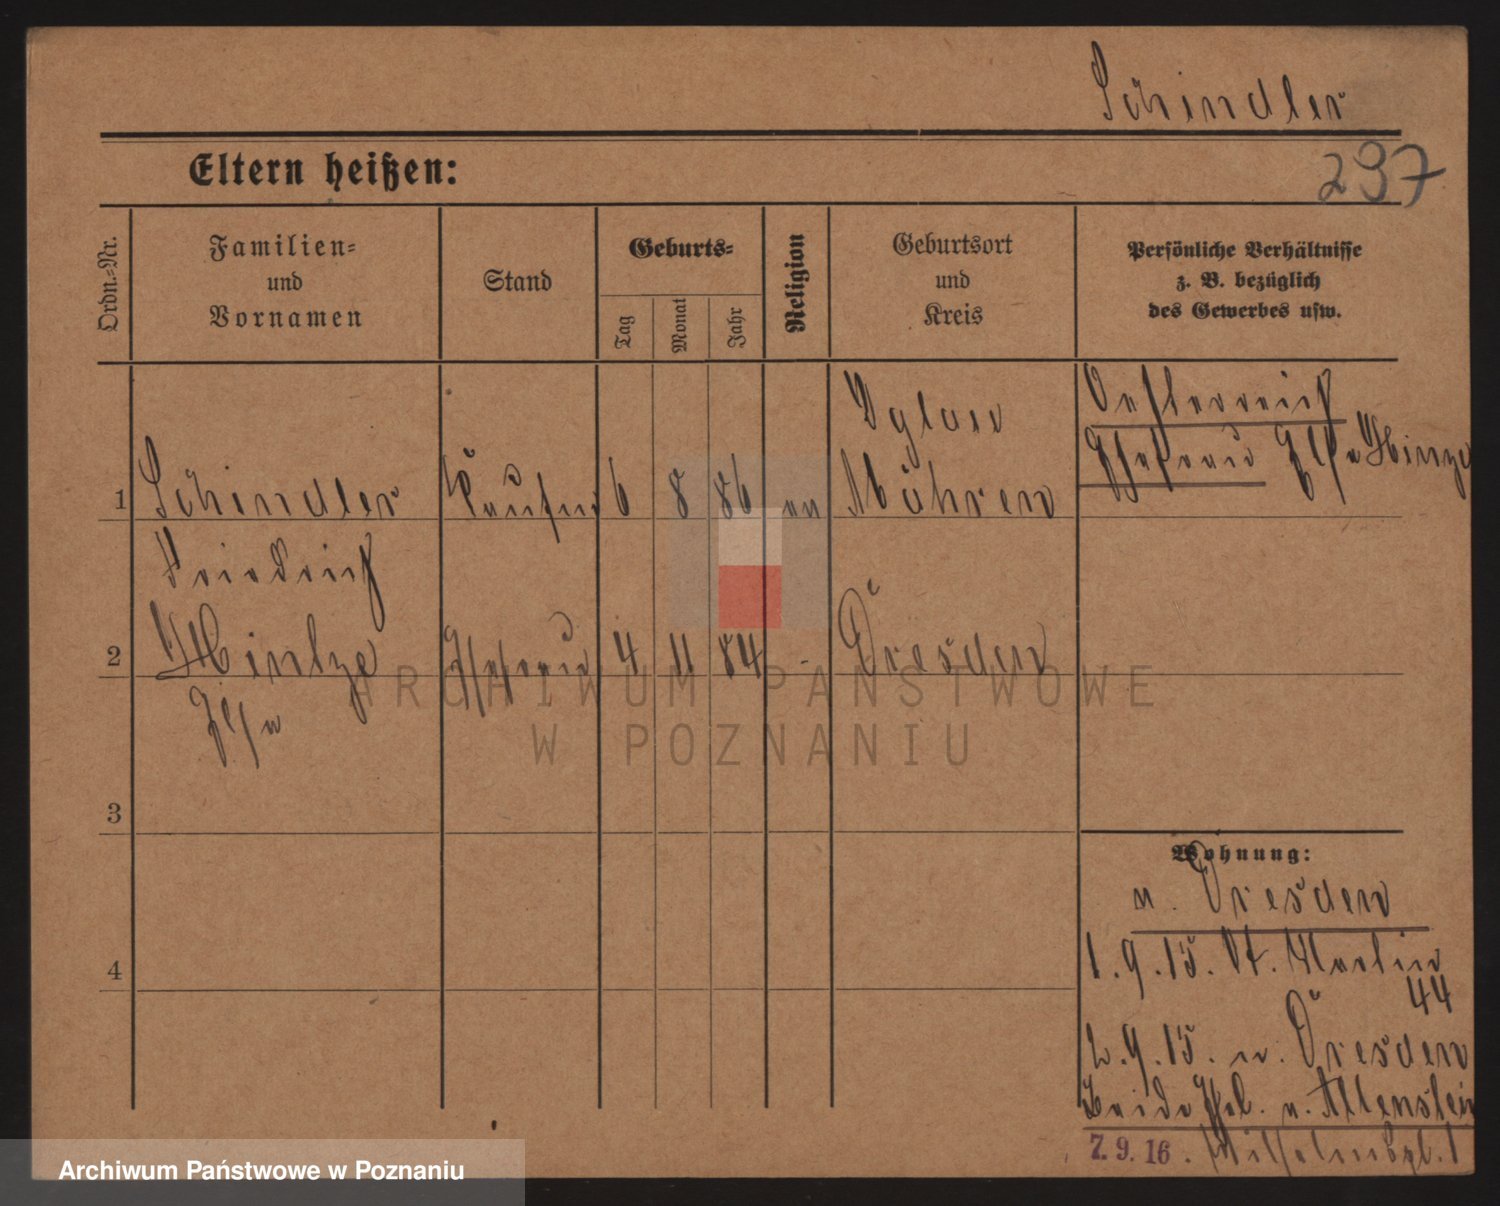 Schindler
Eltern heißen:
297
Ordn.-Nr.
Familien-
und
Vornamen
Stand
Geburts-
Tag
Monat
Jahr
Religion
Geburtsort
und
Kreis
Persönliche Verhältnisse
z. B. bezüglich
des Gewerbes usw.
Oesterreich
Iglau
Ehefrau Else Hinze
1 Schindler Kaufm 6 8 86 Mähren
Friedrich
2 Hintze Ehefrau 4 11 84 - Dresden
Else
3
Wohnung:
n. Dresden
4
1.9.15. St. Martin
44
2.9.15. Dresden
Beide n. Allenstein
7.9.16. 1
ARCHIWUM PAŃSTWOWE
W POZNANIU
Archiwum Państwowe w Poznaniu